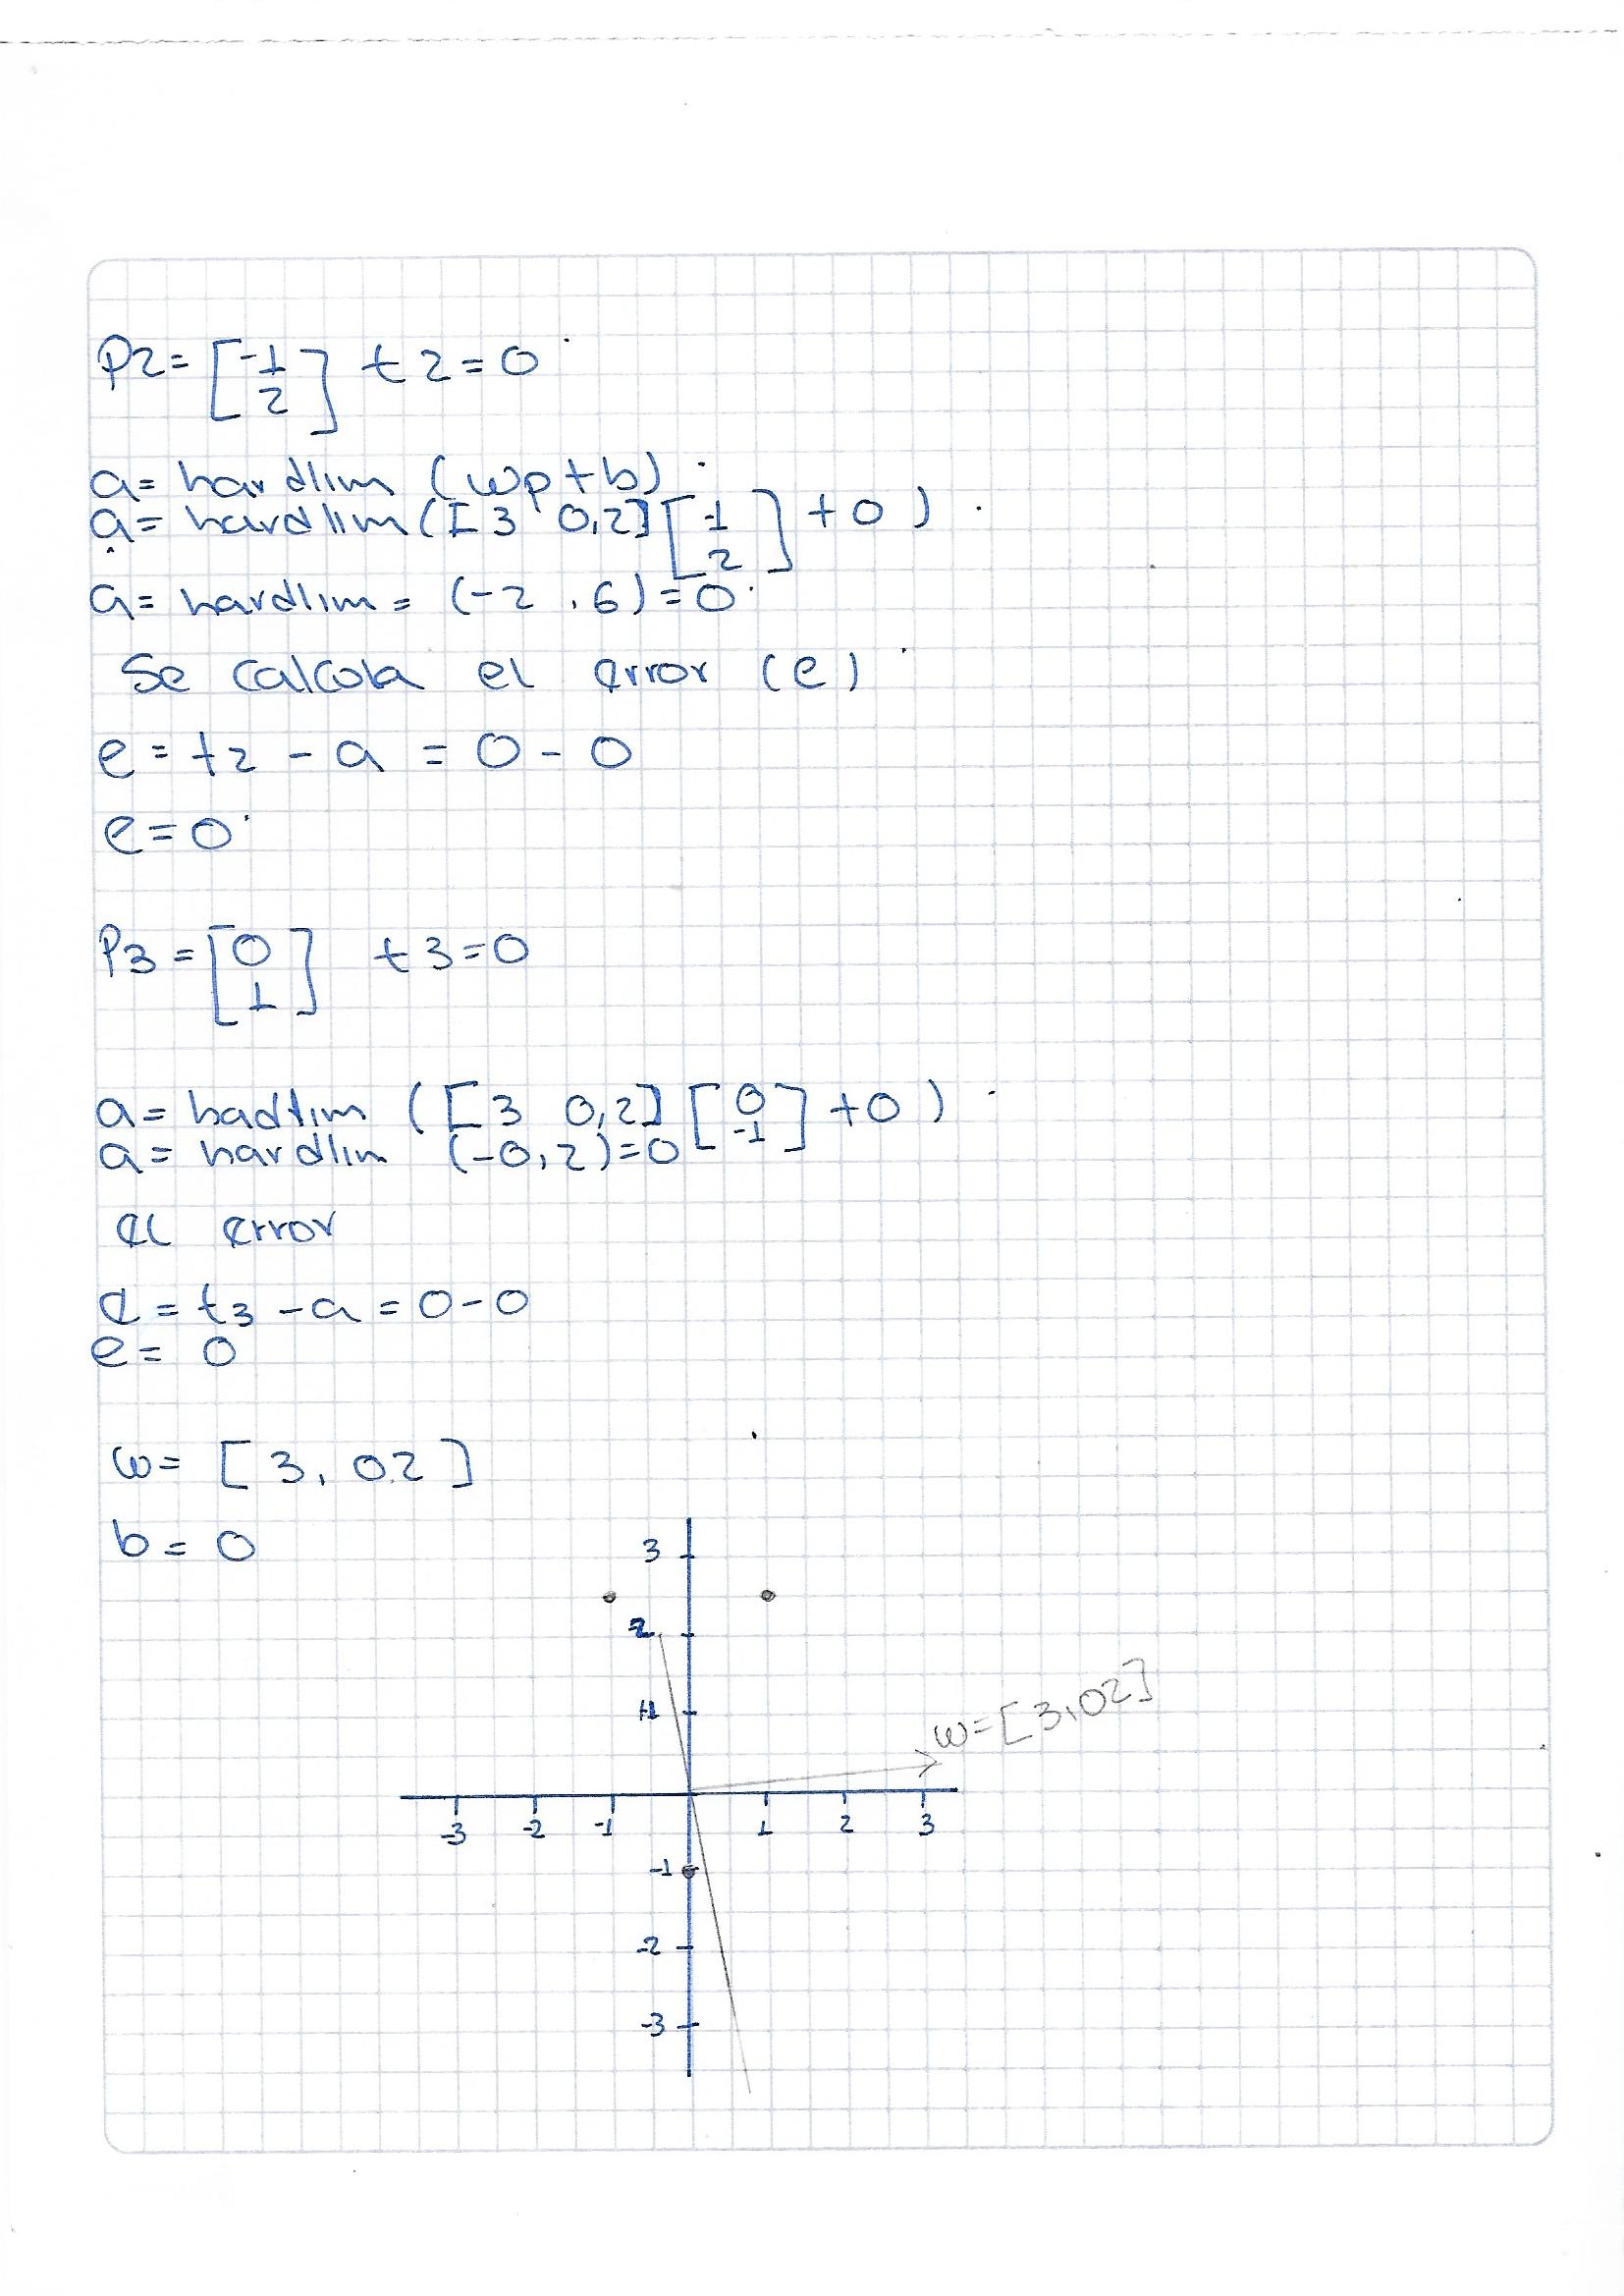 P2= [-1 2] t2=0
a= hardlim (wp+b)
a= hardlim([3 0,2] [-1 2] +0)
a= hardlim = (-2.6)=0
Se calcola el error (e)
e = t2 - a = 0 - 0
e=0
P3 = [0 1] t3=0
a= hadlim ([3 0,2] [0 -1] +0)
a= hardlim (-0,2)=0
el error
e = t3 - a = 0-0
e= 0
w= [3, 0.2]
b= 0
3
2
1
w=[3,02]
-3 -2 -1 1 2 3
-1
-2
-3